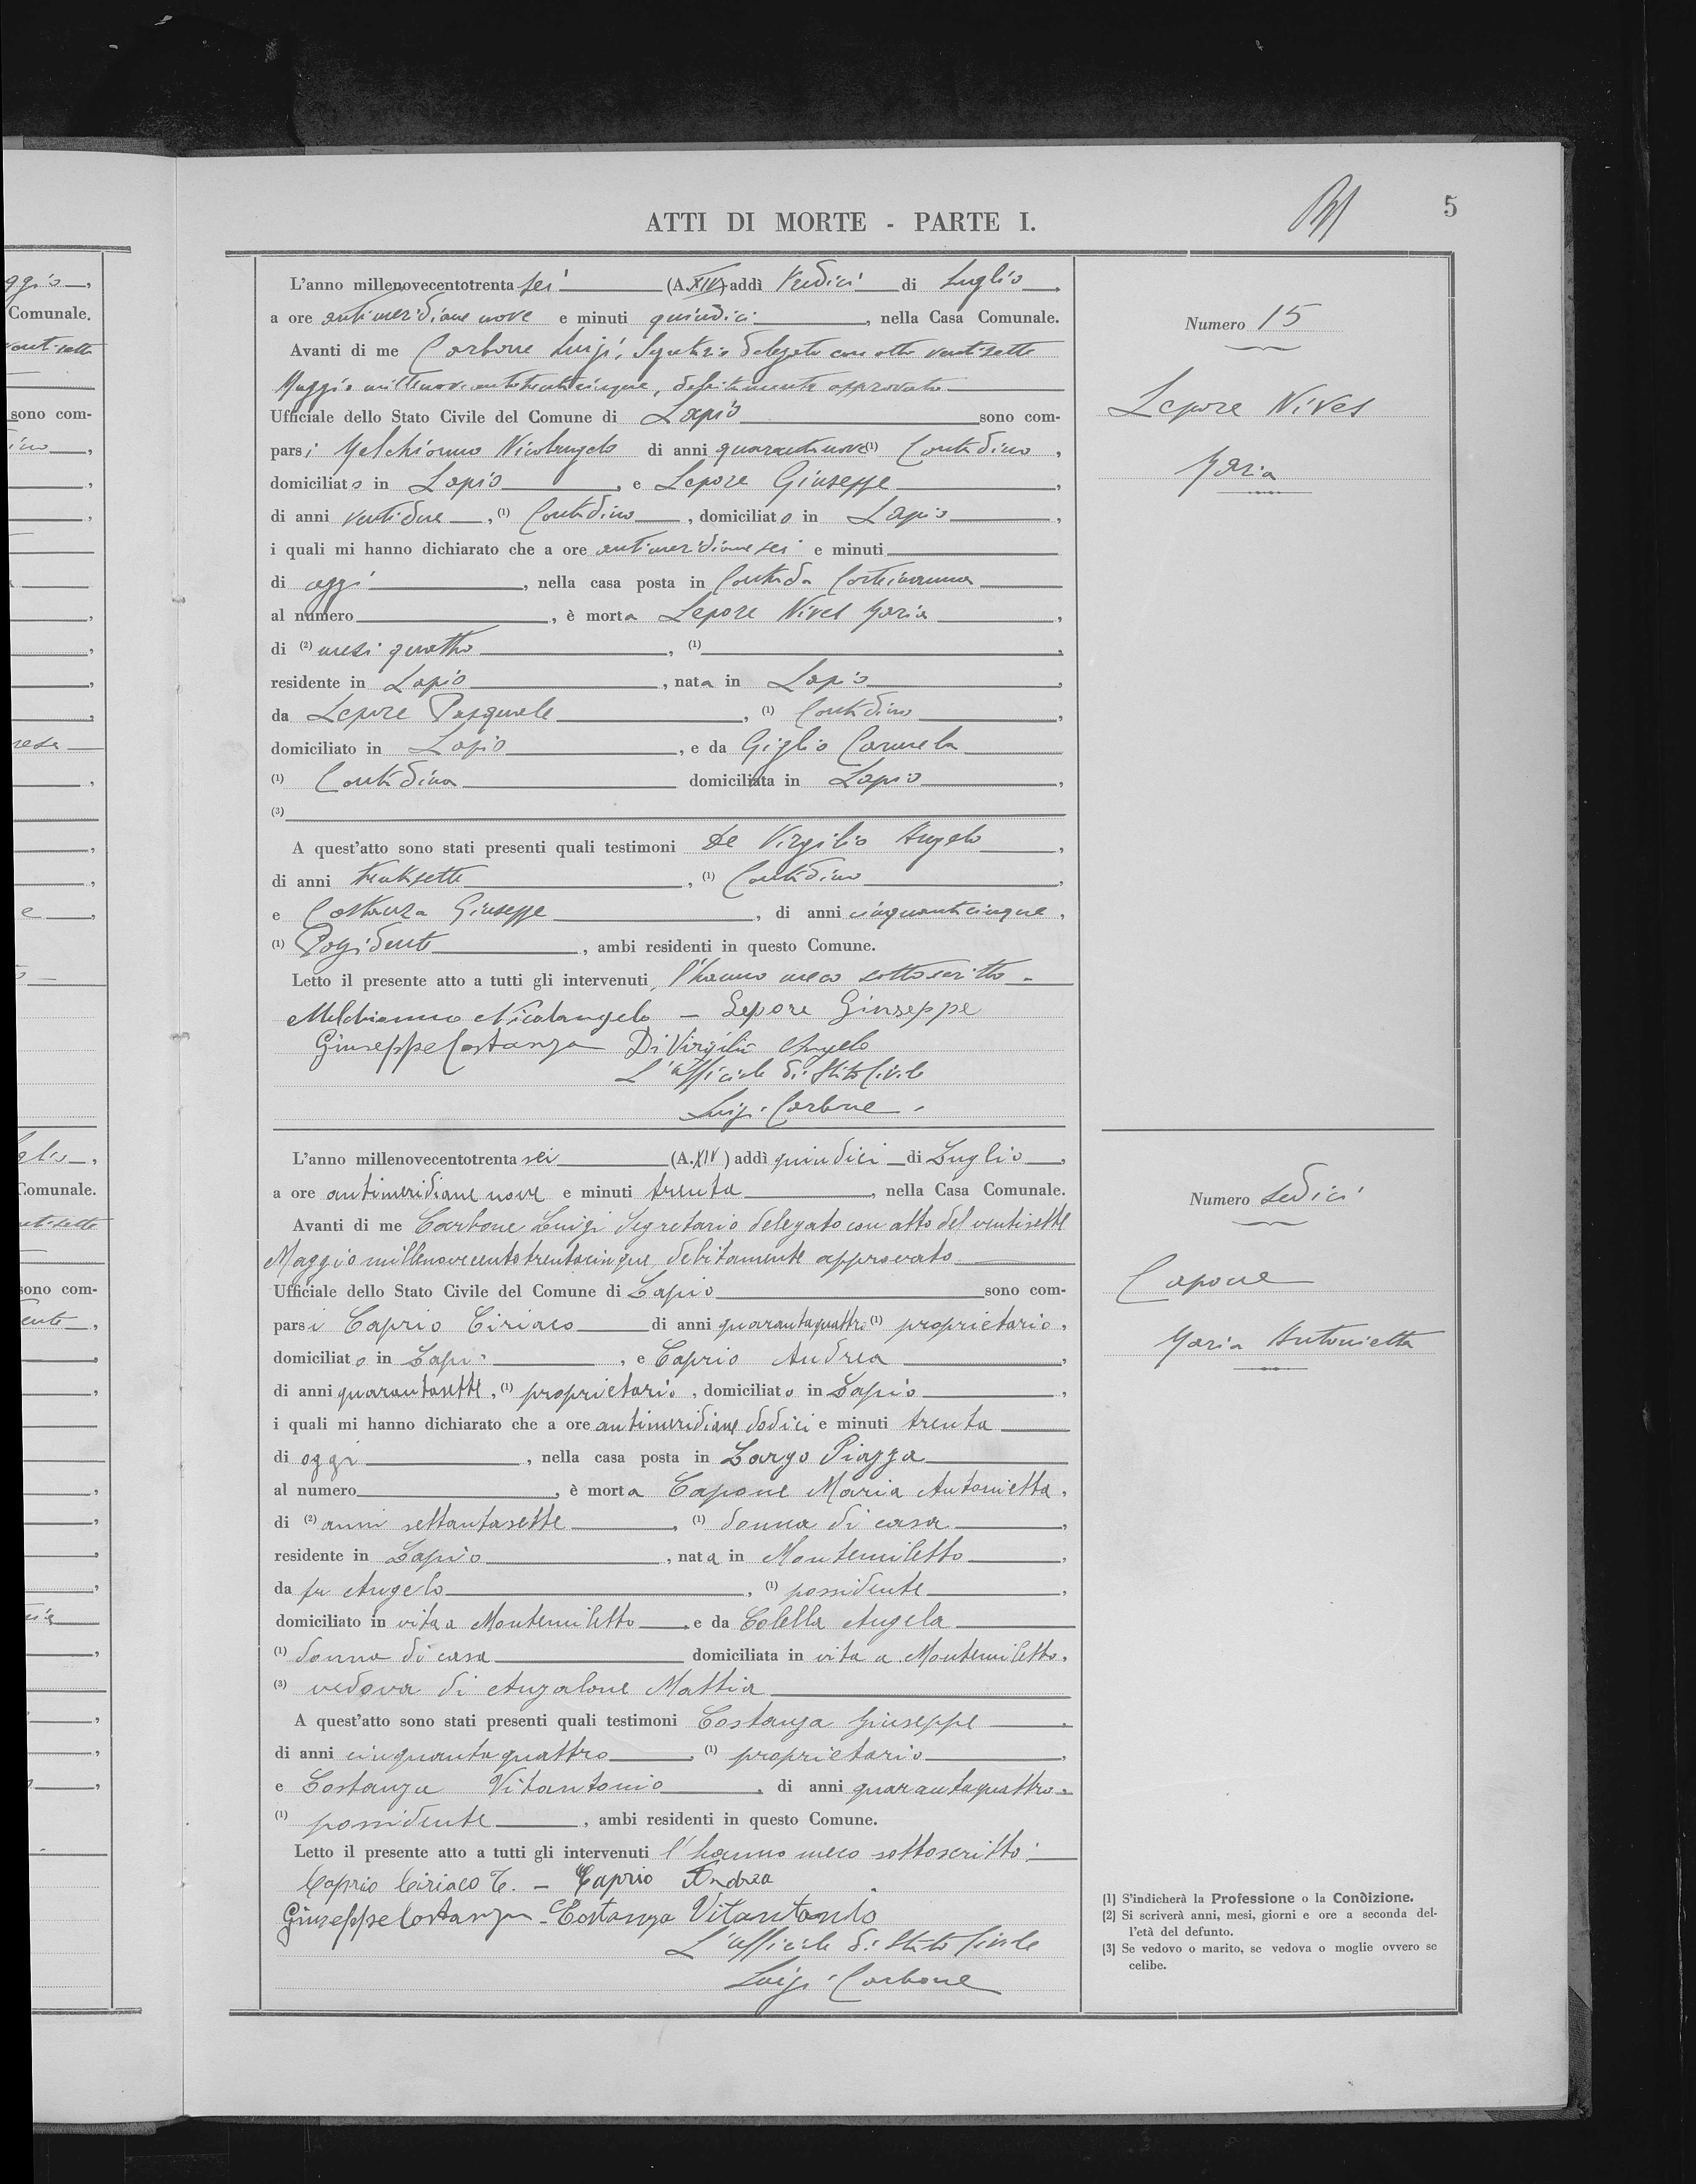 5
ATTI DI MORTE - PARTE I.
L'anno millenovecentotrenta sei (A. XIV) addì tredici di Luglio
a ore antimeridiane nove e minuti quindici, nella Casa Comunale.
Avanti di me Carbone Luigi, Segretario delegato con atto ventisette
Maggio millenovecentotrentacinque, debitamente approvato
Ufficiale dello Stato Civile del Comune di Lapio sono com-
parsi Melchionno Nicolangelo di anni quarantanove (1) Contadino,
domiciliato in Lapio, e Lepore Giuseppe,
di anni ventidue, (1) Contadino, domiciliato in Lapio,
i quali mi hanno dichiarato che a ore antimeridiane sei e minuti
di oggi, nella casa posta in Contrada
al numero, è morta Lepore Nives Maria,
di (2) mesi quattro, (1)
residente in Lapio, nata in Lapio,
da Lepore Pasquale, (1) Contadino,
domiciliato in Lapio, e da Giglio Carmela
(1) Contadina domiciliata in Lapio,
(3)
A quest'atto sono stati presenti quali testimoni De Virgilio Angelo,
di anni trentasette, (1) Contadino,
e Costanza Giuseppe, di anni cinquantacinque,
(1) Possidente, ambi residenti in questo Comune.
Letto il presente atto a tutti gli intervenuti, l'hanno meco sottoscritto -
Melchionno Nicolangelo - Lepore Giuseppe
Giuseppe Costanza Di Virgilio Angelo
L'ufficiale di Stato Civile
Luigi Carbone
Numero 15
Lepore Nives
Maria
L'anno millenovecentotrenta sei (A. XIV) addì quindici di Luglio,
a ore antimeridiane nove e minuti trenta, nella Casa Comunale.
Avanti di me Carbone Luigi Segretario delegato con atto del ventisette
Maggio millenovecentotrentacinque, debitamente approvato
Ufficiale dello Stato Civile del Comune di Lapio sono com-
parsi Caprio Ciriaco di anni quarantaquattro (1) proprietario,
domiciliato in Lapio, e Caprio Andrea,
di anni quarantasette, (1) proprietario, domiciliato in Lapio,
i quali mi hanno dichiarato che a ore antimeridiane dodici e minuti trenta
di oggi, nella casa posta in Largo Piazza
al numero, è morta Capone Maria Antonietta,
di (2) anni settantasette, (1) donna di casa,
residente in Lapio, nata in Montemiletto,
da fu Angelo, (1) possidente,
domiciliato in vita a Montemiletto, e da Colella Angela
(1) donna di casa domiciliata in vita a Montemiletto,
(3) vedova di Anzalone Mattia
A quest'atto sono stati presenti quali testimoni Costanza Giuseppe,
di anni cinquantaquattro, (1) proprietario,
e Costanza Vitantonio, di anni quarantaquattro,
(1) possidente, ambi residenti in questo Comune.
Letto il presente atto a tutti gli intervenuti l'hanno meco sottoscritto:
Caprio Ciriaco - Caprio Andrea
Giuseppe Costanza - Costanza Vitantonio
L'ufficiale di Stato Civile
Luigi Carbone
Numero sedici
Capone
Maria Antonietta
(1) S'indicherà la Professione o la Condizione.
(2) Si scriverà anni, mesi, giorni e ore a seconda del-
l'età del defunto.
(3) Se vedovo o marito, se vedova o moglie ovvero se
celibe.